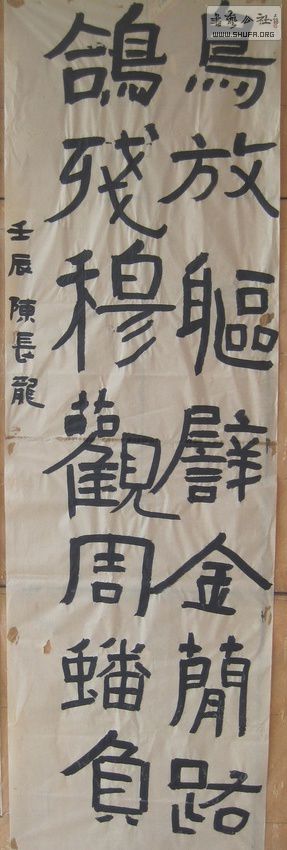 鳥放軀譬金蕑路
鴿殘穆觀周蟠負
壬辰陳長龍
公社
WWW.SHUFA.ORG